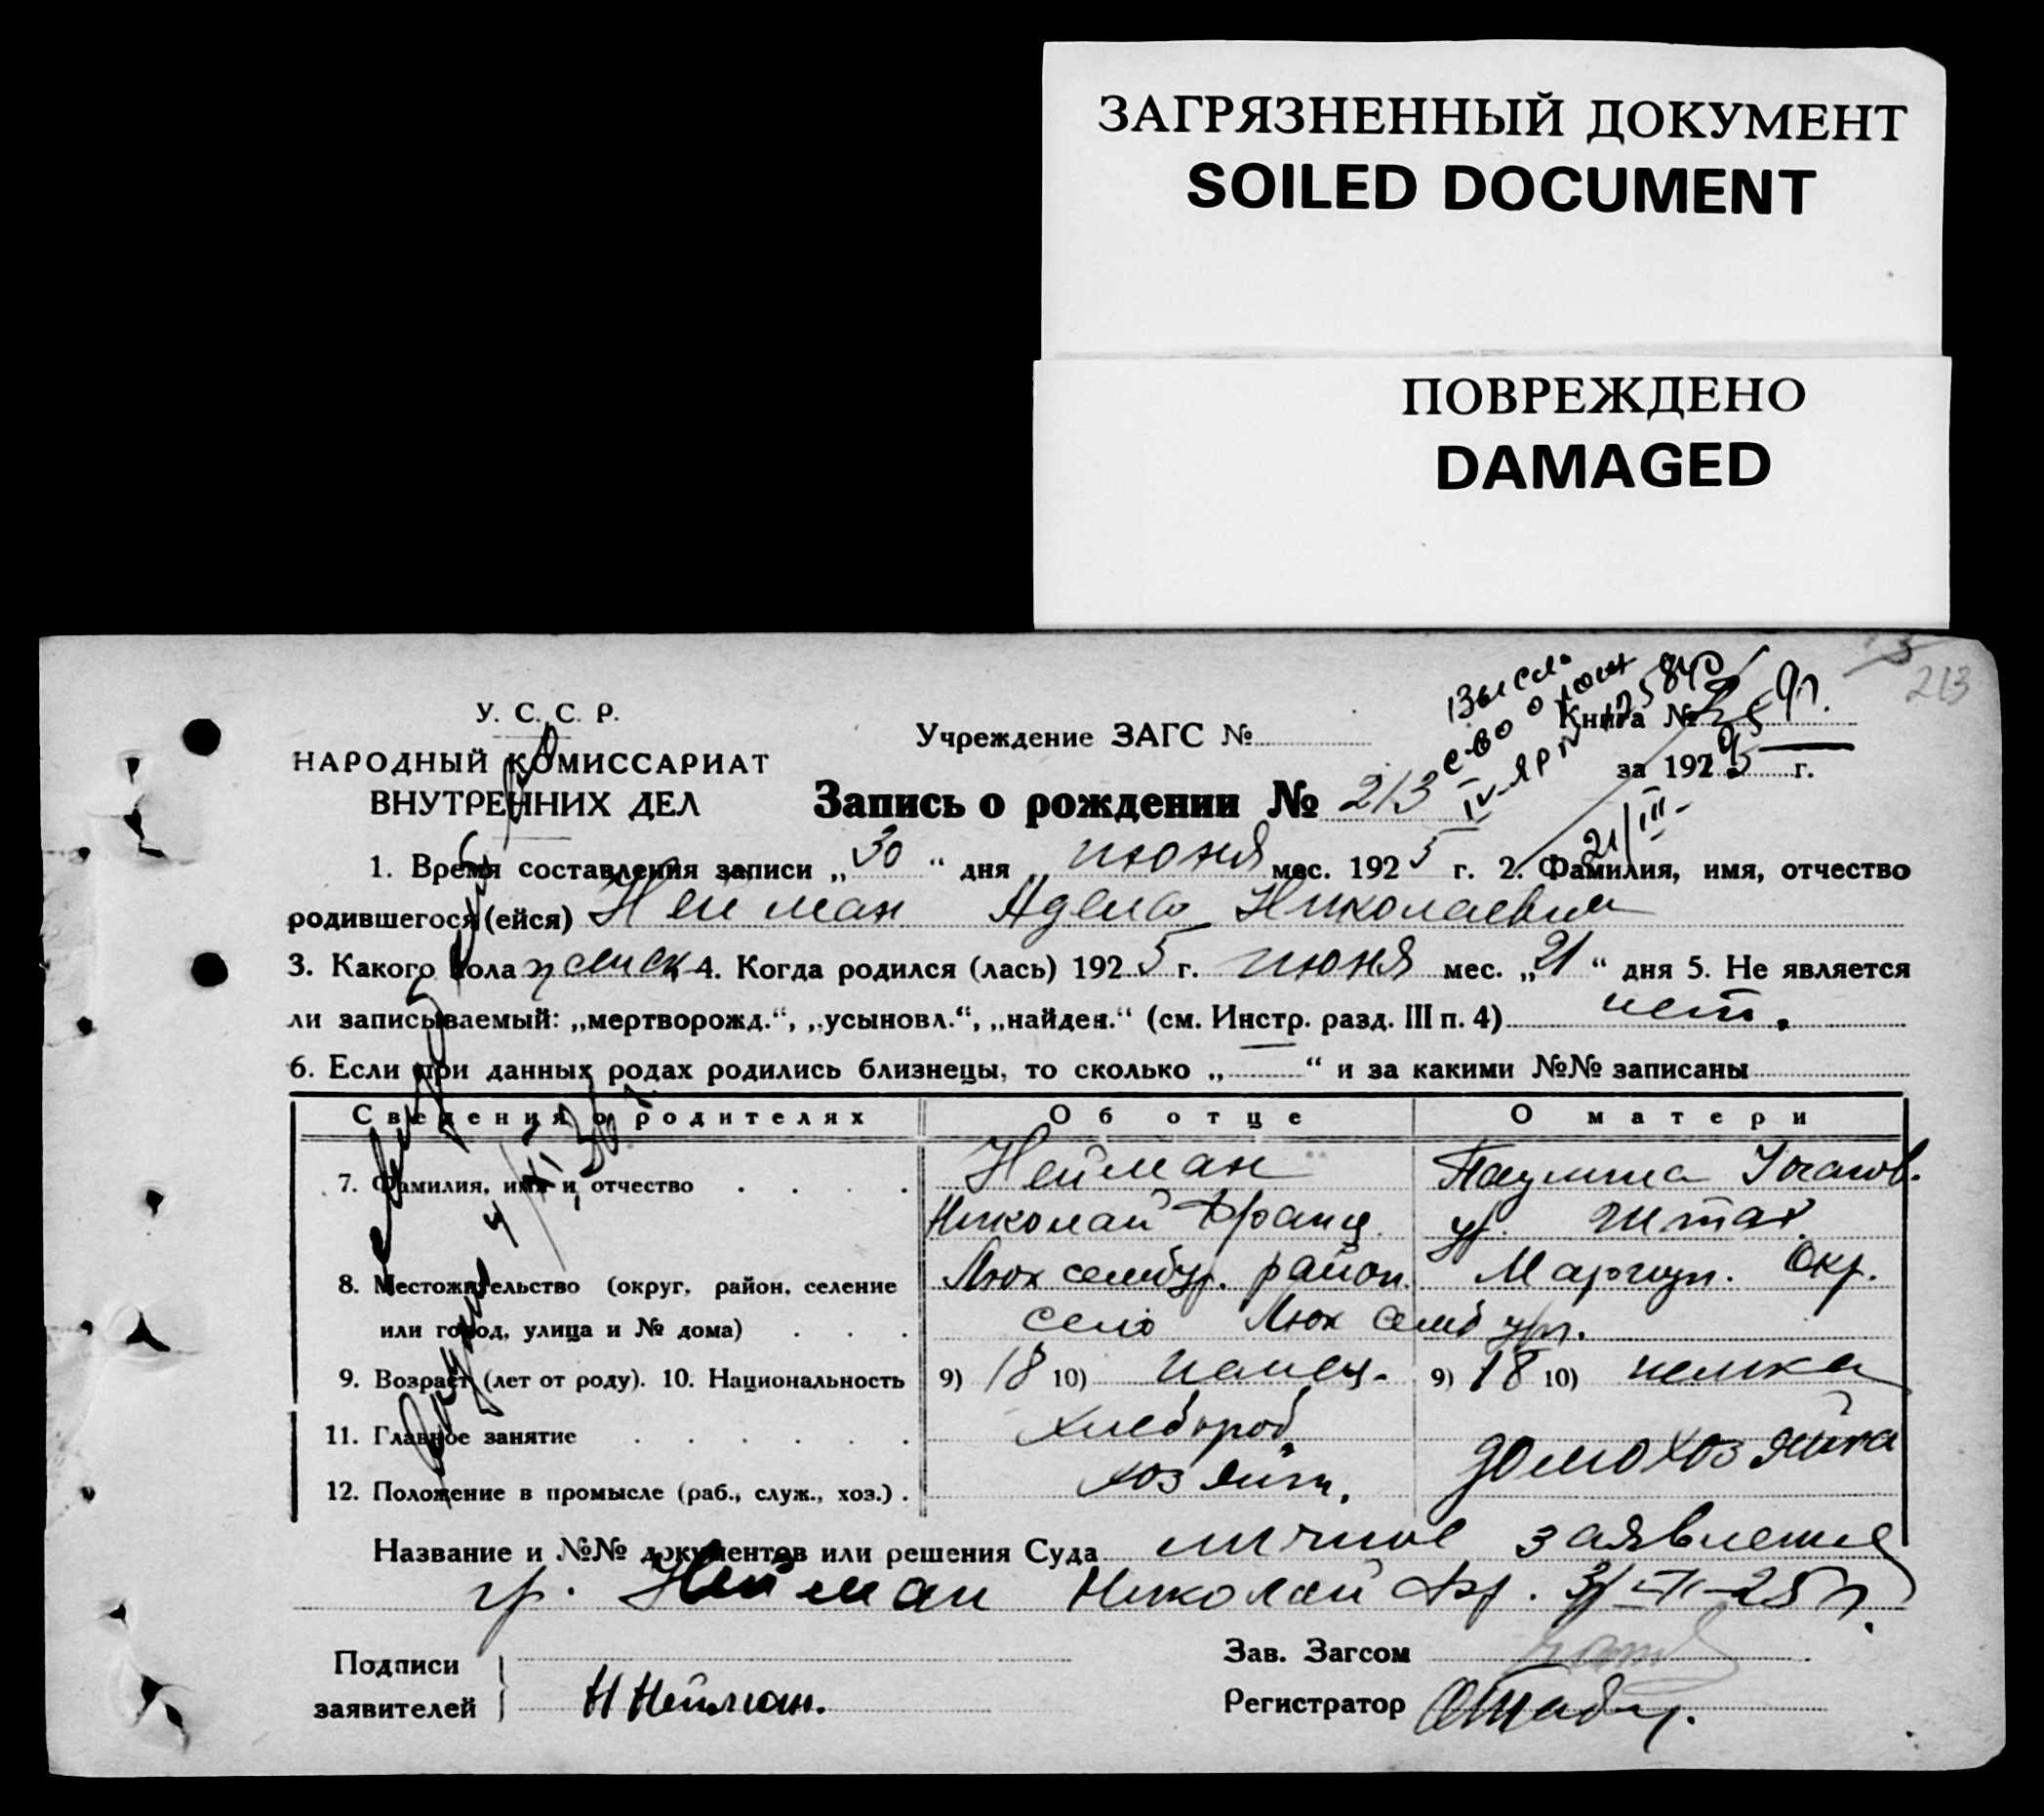 ЗАГРЯЗНЕННЫЙ ДОКУМЕНТ
SOILED DOCUMENT
ПОВРЕЖДЕНО
DAMAGED
213
У. С. С. Р.
НАРОДНЫЙ КОМИССАРИАТ
ВНУТРЕННИХ ДЕЛ
Учреждение ЗАГС №
Книга №
за 1925 г.
21/III-
Запись о рождении № 213
1. Время составления записи „30“ дня июня мес. 1925 г. 2. Фамилия, имя, отчество
родившегося (ейся) Нейман Адела Николаевна
3. Какого пола женск 4. Когда родился (лась) 1925 г. июня мес. „21“ дня 5. Не является
ли записываемый: „мертворожд.“, „усыновл.“, „найден.“ (см. Инстр. разд. III п. 4) нет.
6. Если при данных родах родились близнецы, то сколько „—“ и за какими №№ записаны
Сведения о родителях Об отце О матери
7. Фамилия, имя и отчество Нейман Паулина
Николай Франц.
8. Местожительство (округ, район, селение Люксембур. район. Мариуп. Окр.
или город, улица и № дома) село Люксембург.
9. Возраст (лет от роду). 10. Национальность 9) 18 10) немец. 9) 18 10) немка
11. Главное занятие хлебороб домохозяйка
12. Положение в промысле (раб., служ., хоз.) хозяин.
Название и №№ документов или решения Суда личное заявление
гр. Нейман Николай Фр.
Подписи
заявителей Н Нейман.
Зав. Загсом
Регистратор